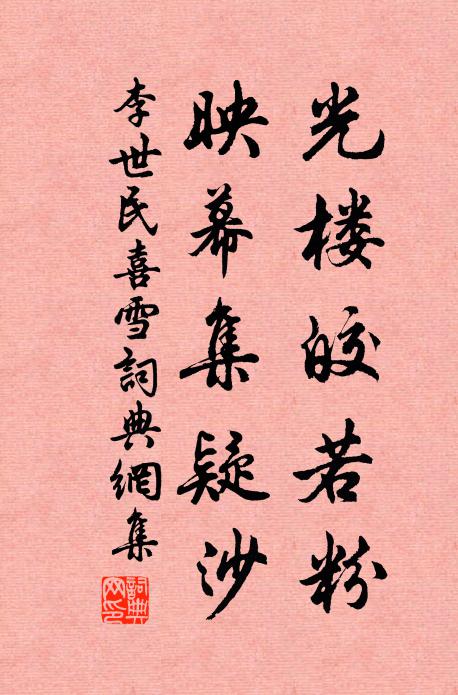 光楼皎若粉
映幕集疑沙
李世民喜雪詞典網集
詞典網印